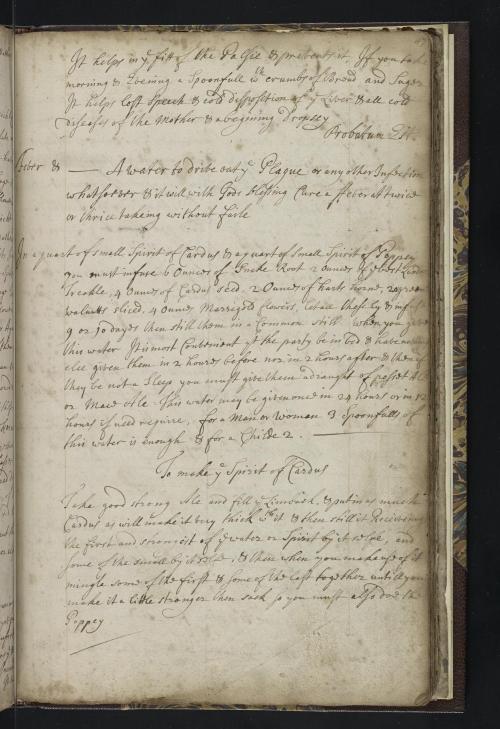 It helps in yͤ fitt of the Palsie & prevents it, If you take
morning & Evening a Spoonfull wth crumbs of Bread and Sugar
It helps lost Speech & cold disposition of yͤ Liver & all cold
diseases of the Mother & a begining dropsey
Probatum Est.
Fever & — A water to drive out yͤ Plague or any other Infection
whatsoever & it will with Gods blessing Cure a ffever at twice
or thrice takeing without faile
In a quart of small Spirit of Cardus & a quart of Small Spirit of Poppey
you must infuse 6 Ounces of Root 2 ounces of yͤ best
Treakle, 4 ounces of Cardus seed, 2 Ounces of harts horne, 20 green
walnutts sliced, 4 ounces Marrigold flowers, let all these ly & infuse
9 or 10 dayes then still them in a Common still, when you give
this water It is most Convenient yt the party be in bed & have nothing
else given them in 2 hours before nor in 2 hours after & then if
they be not a Sleep you must give them a draught of posset Ale
or Mace Ale. This water may be given once in 24 hours or in 12
hours if need require, for a Man or Woman 3 Spoonfulls of
this water is enough & for a Childe 2.
To make yͤ Spirit of Cardus
Take good strong Ale and fill yͤ Limbeck, & putt in as much
Cardus as will make it very thick wth it & then still it Receiveing
the first and of yͤ water or Spirit by it selfe, and
some of the small by it selfe, & then when you make use of it
mingle some of the first & some of the last together untill you
make it a little stronger then sack so you must also doe the
Poppey